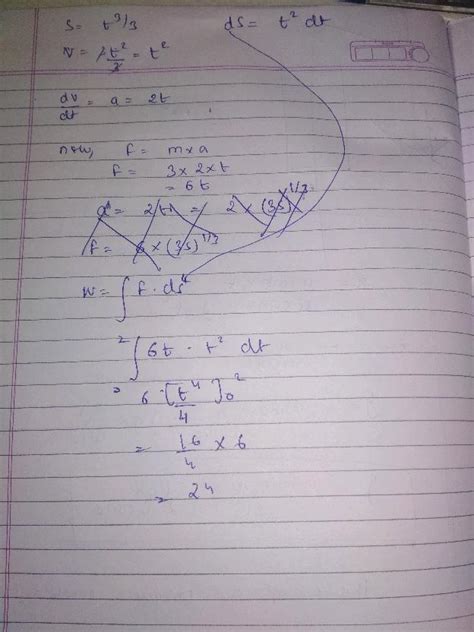 S = t³/3 dS = t² dt
V = 3t²/3 = t²
dv/dt = a = 2t
now, f = m×a
f = 3 × 2 × t
= 6t
a = 2t = 2 × (3s)^1/3
f = 6 × (3s)^1/3
W = ∫ f · ds
²∫ 6t · t² dt
= 6 · [t⁴/4]₀²
= 16/4 × 6
= 24